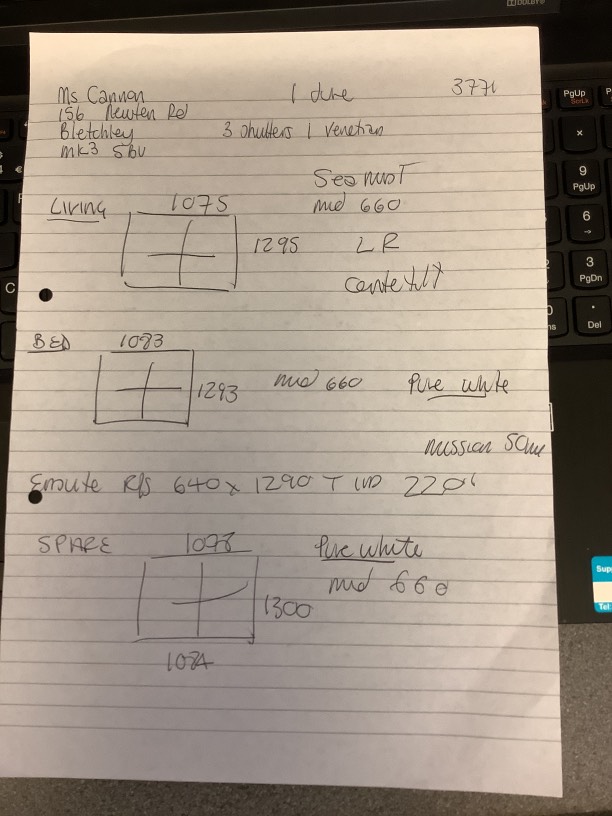 Ms Cannon
1 June
3771
156 Newton Rd
Bletchley
3 Shutters 1 Venetian
MK3 5BU
Sea mist
LIVING
1075
mid 660
1295
LR
Centre tilt
BED
1083
1293
mid 660
Pure white
mission
Ensuite R/S 640 x 1290 T
2206
SPARE
1078
Pure white
mid 660
1300
1084
PgUp
9
PgUp
6
3
PgDn
Del
C